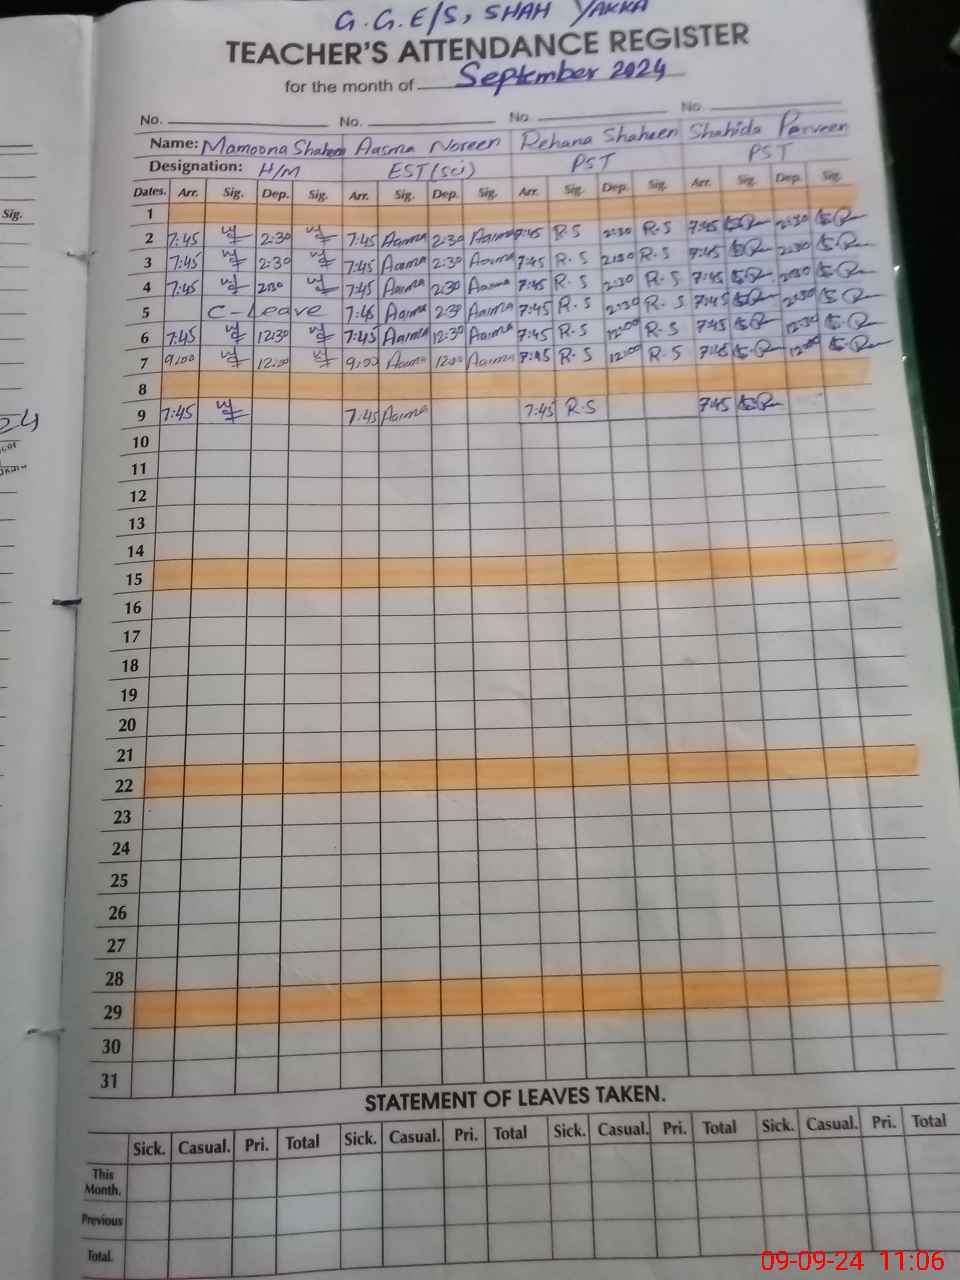 G.G.E/S, SHAH YAKKA
TEACHER'S ATTENDANCE REGISTER
for the month of September 2024
No. No. No. No.
Name: Mamoona Shaheen Aasma Noreen Rehana Shaheen Shahida Parveen
Designation: H/M EST(sci) PST PST
Dates. Arr. Sig. Dep. Sig. Arr. Sig. Dep. Sig. Arr. Sig. Dep. Sig. Arr. Sig. Dep. Sig.
1
2 7:45 2:30 7:45 Aasma 2:30 Aasma 7:45 R.S 2:30 R.S 7:45 2:30
3 7:45 2:30 7:45 Aasma 2:30 Aasma 7:45 R.S 2:30 R.S 7:45 2:30
4 7:45 2:30 7:45 Aasma 2:30 Aasma 7:45 R.S 2:30 R.S 7:45 2:30
5 C-Leave 7:45 Aasma 2:30 Aasma 7:45 R.S 2:30 R.S 7:45 2:30
6 7:45 12:30 7:45 Aasma 12:30 Aasma 7:45 R.S 12:00 R.S 7:45 12:30
7 9:00 12:00 9:00 Aasma 12:00 Aasma 7:45 R.S 12:00 R.S 7:45 12:00
8
9 7:45 7:45 Aasma 7:45 R.S 7:45
10
11
12
13
14
15
16
17
18
19
20
21
22
23
24
25
26
27
28
29
30
31
STATEMENT OF LEAVES TAKEN.
Sick. Casual. Pri. Total Sick. Casual. Pri. Total Sick. Casual. Pri. Total Sick. Casual. Pri. Total
This Month.
Previous
Total.
Sig.
09-09-24 11:06